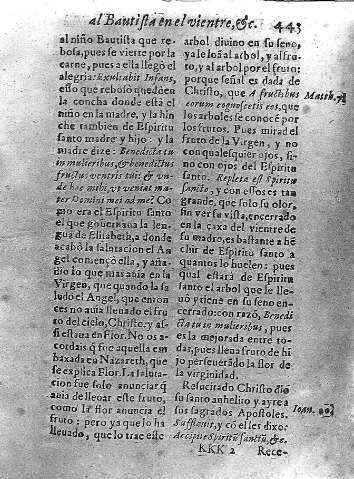 al Bautista en el vientre, &c. 443
al niño Bautista que re-
bosa, pues se vierte por la
carne, pues a ella llegó el
alegria: Exultabit Infans,
esso que rebosò quedò en
la concha donde està el
niño en la madre, y la hin
che tambien de Espiritu
santo madre y hijo: y la
madre dize: Benedicta tu
in mulieribus, & benedictus
fructus ventris tui: & vn-
de hoc mihi, vt veniat ma-
ter Domini mei ad me? Co
mo era el Espiritu santo
el que gouernaua la len-
gua de Elisabeth, a donde
acabò la salutacion el An
gel començò ella, y aña-
dio lo que mas auia en la
Virgen, que quando la sa
ludò el Angel, que enton
ces no auia lleuado el fru
to del cielo, Christo: y as-
si estaua en Flor. No os a-
cordais q̃ fue aquella em
baxada en Nazareth, que
se explica Flor. La saluta-
cion fue solo anunciar q̃
auia de lleuar este fruto,
como la flor anuncia el
fruto: pero ya que lo ha
lleuado, que lo trae este
arbol diuino en su seno,
ya le loã al arbol, y al fru-
to, y al arbol por el fruto:
porque señal es dada de
Christo, que A fructibus
eorum cognoscetis eos, que
los arboles se conocẽ por
los frutos. Pues mirad el
fruto de la Virgen, y no
con qualesquier ojos, si-
no con ojos del Espiritu
santo. Repleta est Spiritu
sancto, y con essos es tan
grande, que solo su olor,
sin ver su vista, encerrado
en la caxa del vientre de
su madre, es bastante a hē
chir de Espiritu santo a
quantos lo huelen: pues
qual estarà de Espiritu
santo el arbol que le lle-
uò y tiene en su seno en-
cerrado: con razõ, Benedi
cta tu in mulieribus, pues
es la mejorada entre to-
das, pues lleua fruto de hi
jo perseuerãdo la flor de
la virginidad.
Resucitado Christo diò
su santo anhelito y ayre a
sus sagrados Apostoles.
Sufflauit, y cõ èl les dixo:
Accipite Spiritũ sanctũ, &c.
Matth. 7.
Ioan. 20.
KKK 2 Rece-